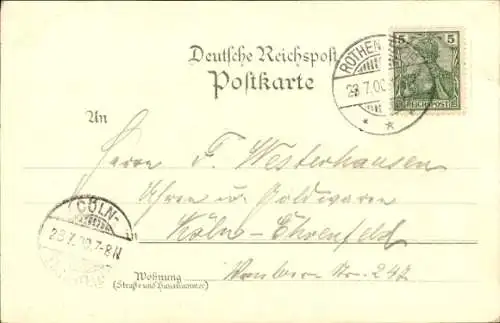 5 5
REICHSPOST
ROTHEN
23.7.00
Deutsche Reichspost
Postkarte
An
Herrn F. Westerhausen
Uhren u. Goldwaren
in Köln-Ehrenfeld
CÖLN-
23.7.00.7-8N
Wohnung
(Straße und Hausnummer)
Venloer Str. 242